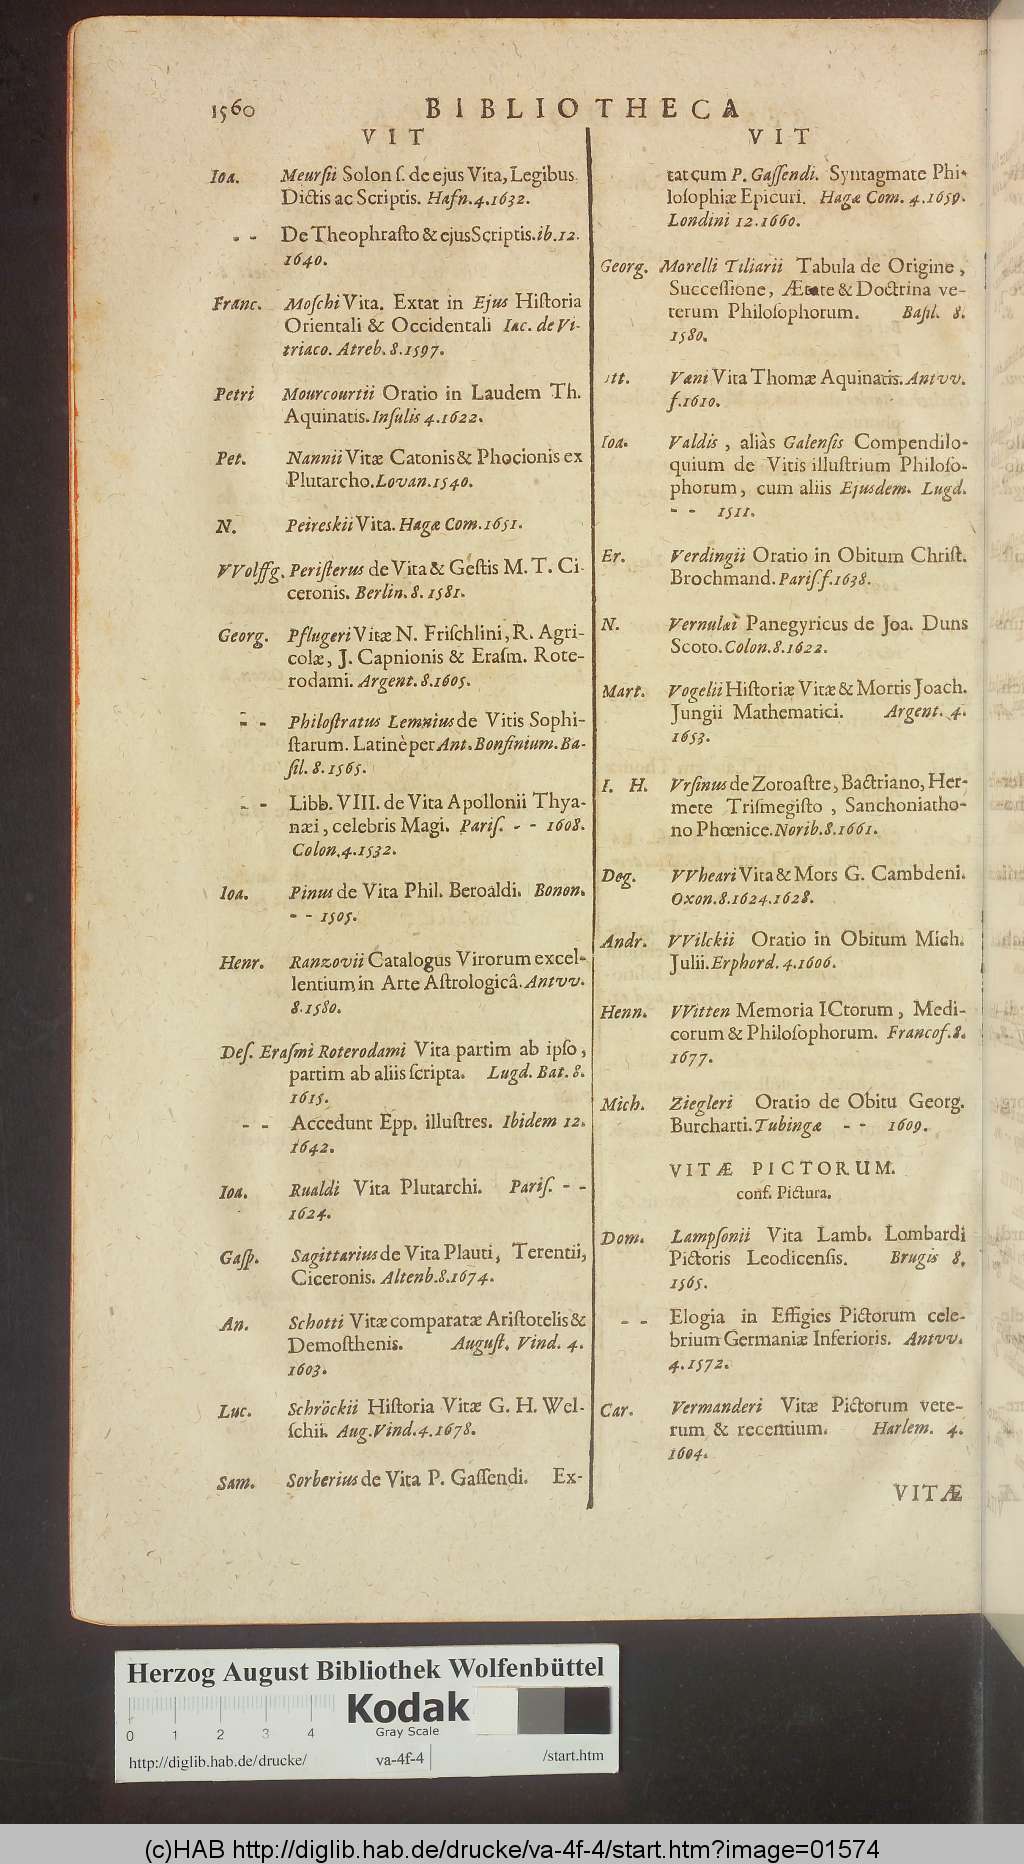 1560 BIBLIOTHECA
VIT
Ioa. Meursii Solon s. de ejus Vita, Legibus
Dictis ac Scriptis. Hafn. 4. 1632.
- - De Theophrasto & ejus Scriptis. ib. 12.
1640.
Franc. Moschi Vita. Extat in Ejus Historia
Orientali & Occidentali Iac. de Vi-
triaco. Atreb. 8. 1597.
Petri Mourcourtii Oratio in Laudem Th.
Aquinatis. Insulis 4. 1622.
Pet. Nannii Vitæ Catonis & Phocionis ex
Plutarcho. Lovan. 1540.
N. Peireskii Vita. Hagæ Com. 1651.
VVolffg. Peristerus de Vita & Gestis M. T. Ci-
ceronis. Berlin. 8. 1581.
Georg. Pflugeri Vitæ N. Frischlini, R. Agri-
colæ, J. Capnionis & Erasm. Rote-
rodami. Argent. 8. 1605.
- - Philostratus Lemnius de Vitis Sophi-
starum. Latinè per Ant. Bonfinium. Ba-
sil. 8. 1565.
- - Libb. VIII. de Vita Apollonii Thya-
næi, celebris Magi. Paris. - - 1608.
Colon. 4. 1532.
Ioa. Pinus de Vita Phil. Beroaldi. Bonon.
- - 1505.
Henr. Ranzovii Catalogus Virorum excel-
lentium in Arte Astrologicâ. Antvv.
8. 1580.
Des. Erasmi Roterodami Vita partim ab ipso,
partim ab aliis scripta. Lugd. Bat. 8.
1615.
- - Accedunt Epp. illustres. Ibidem 12.
1642.
Ioa. Rualdi Vita Plutarchi. Paris. - -
1624.
Gasp. Sagittarius de Vita Plauti, Terentii,
Ciceronis. Altenb. 8. 1674.
An. Schotti Vitæ comparatæ Aristotelis &
Demosthenis. August. Vind. 4.
1603.
Luc. Schröckii Historia Vitæ G. H. Wel-
schii. Aug. Vind. 4. 1678.
Sam. Sorberius de Vita P. Gassendi. Ex-
VIT
tat cum P. Gassendi. Syntagmate Phi-
losophiæ Epicuri. Hagæ Com. 4. 1659.
Londini 12. 1660.
Georg. Morelli Tiliarii Tabula de Origine,
Successione, Ætate & Doctrina ve-
terum Philosophorum. Basil. 8.
1580.
tt. Væni Vita Thomæ Aquinatis. Antvv.
f. 1610.
Ioa. Valdis, aliàs Galensis Compendilo-
quium de Vitis illustrium Philoso-
phorum, cum aliis Ejusdem. Lugd.
- - 1511.
Er. Verdingii Oratio in Obitum Christ.
Brochmand. Paris. f. 1638.
N. Vernulæi Panegyricus de Joa. Duns
Scoto. Colon. 8. 1622.
Mart. Vogelii Historiæ Vitæ & Mortis Joach.
Jungii Mathematici. Argent. 4.
1653.
I. H. Vrsinus de Zoroastre, Bactriano, Her-
mete Trismegisto, Sanchoniatho-
no Phœnice. Norib. 8. 1661.
Deg. VVheari Vita & Mors G. Cambdeni.
Oxon. 8. 1624. 1628.
Andr. VVilckii Oratio in Obitum Mich.
Julii. Erphord. 4. 1606.
Henn. VVitten Memoria ICtorum, Medi-
corum & Philosophorum. Francof. 8.
1677.
Mich. Ziegleri Oratio de Obitu Georg.
Burcharti. Tubingæ - - 1609.
VITÆ PICTORUM.
conf. Pictura.
Dom. Lampsonii Vita Lamb. Lombardi
Pictoris Leodicensis. Brugis 8.
1565.
- - Elogia in Effigies Pictorum cele-
brium Germaniæ Inferioris. Antvv.
4. 1572.
Car. Vermanderi Vitæ Pictorum vete-
rum & recentium. Harlem. 4.
1604.
VITÆ
Herzog August Bibliothek Wolfenbüttel
Kodak
Gray Scale
0 1 2 3 4
http://diglib.hab.de/drucke/ va-4f-4 /start.htm
(c)HAB http://diglib.hab.de/drucke/va-4f-4/start.htm?image=01574